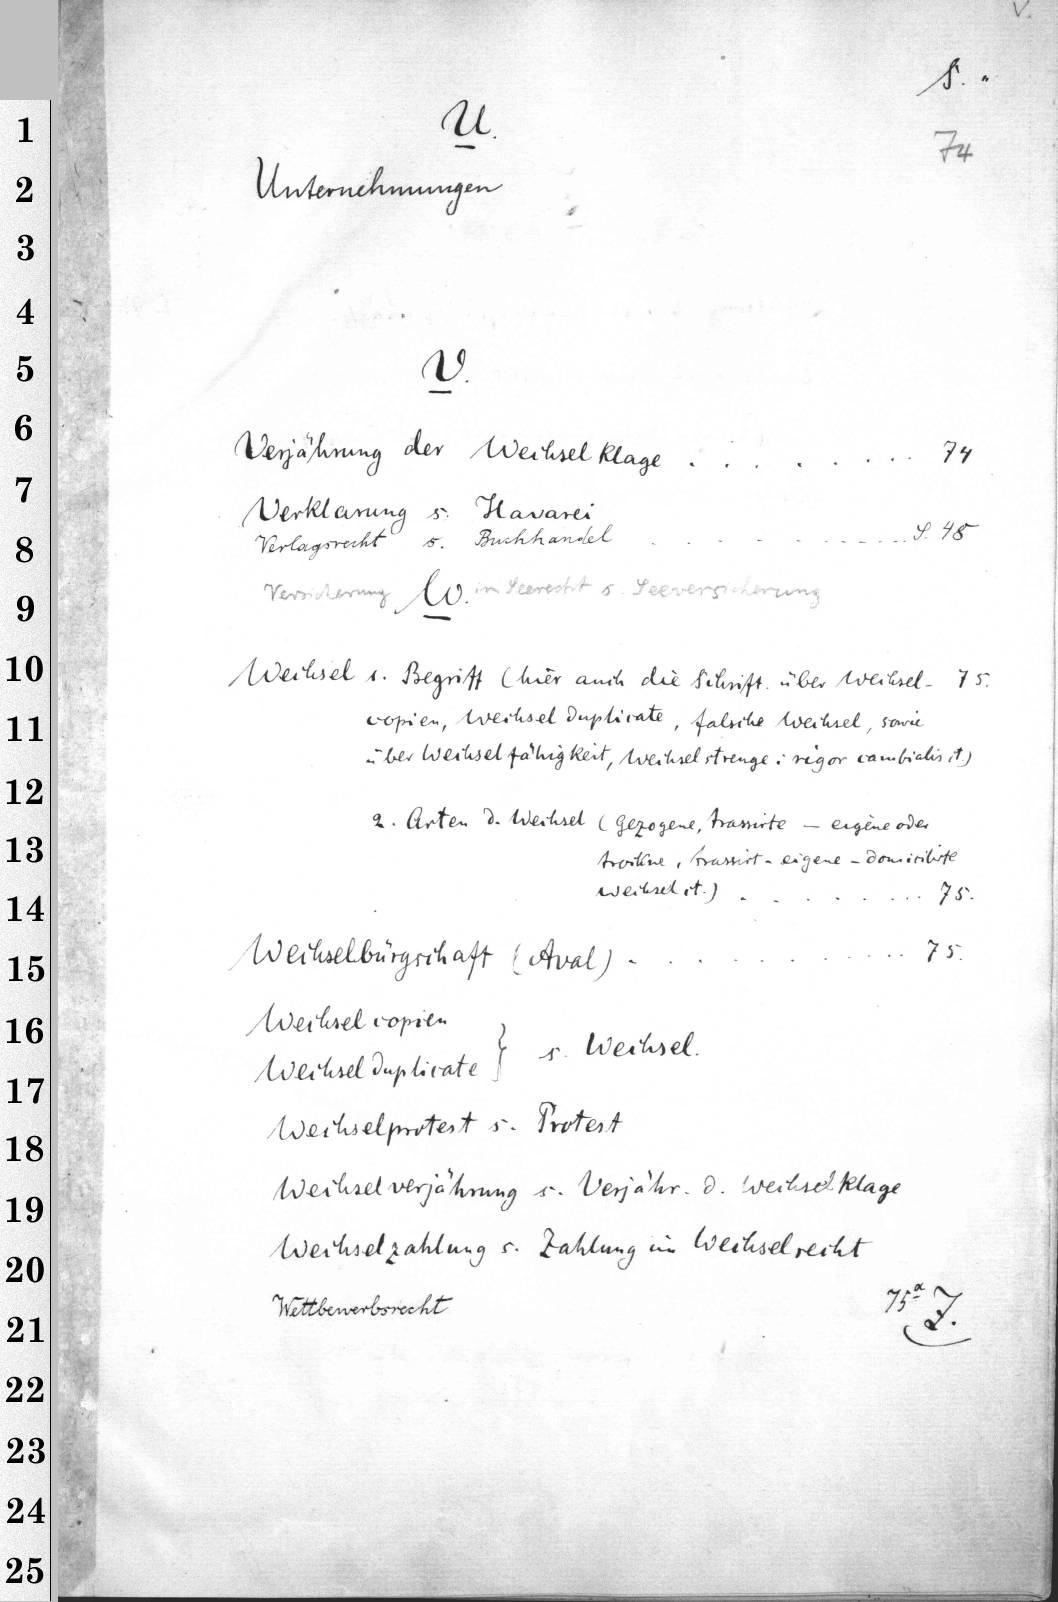 V.
S.
U.
74
Unternehmungen
V.
Verjährung der Wechselklage . . . . . . . . 74
Verklarung s. Havarei
Verlagsrecht s. Buchhandel . . . . . . . . . S. 48
Versicherung im Seerecht s. Seeversicherung
W.
Wechsel 1. Begriff (hier auch die Schrift. über Wechsel- 75.
copien, Wechselduplicate, falsche Wechsel, sowie
über Wechselfähigkeit, Wechselstrenge: rigor cambialis it.)
2. Arten d. Wechsel (Gezogene, trassirte — eigene oder
trockne, trassirt-eigene - domicilirte
Wechsel it.) . . . . . . . . 75.
Wechselbürgschaft (Aval) . . . . . . . . . . 75.
Wechselcopien
} s. Wechsel.
Wechselduplicate
Wechselprotest s. Protest
Wechselverjährung s. Verjähr. d. Wechselklage
Wechselzahlung s. Zahlung im Wechselrecht
Wettbewerbsrecht 75a
Z.
1
2
3
4
5
6
7
8
9
10
11
12
13
14
15
16
17
18
19
20
21
22
23
24
25